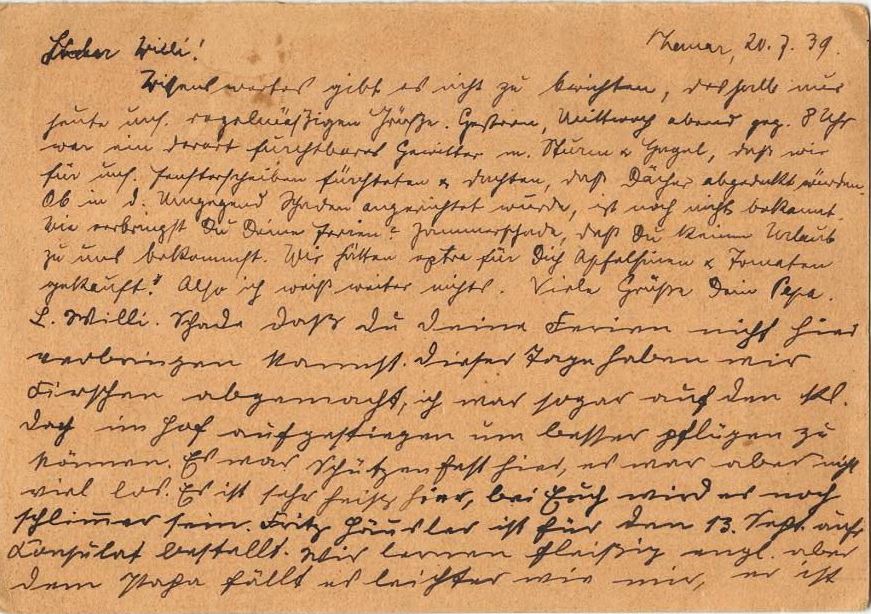 Lieber Willi! Themar, 20.7.39.
Wissenswertes gibt es nicht zu berichten, deshalb nur
heute uns. regelmäßigen Grüße. Gestern, Mittwoch abend geg. 8 Uhr
war ein derart furchtbares Gewitter m. Sturm & Hagel, daß wir
für uns. Fensterscheiben fürchteten & dachten, daß Dächer abgedeckt würden.
Ob in d. Umgegend Schaden angerichtet wurde, ist noch nichts bekannt.
Wie verbringst Du Deine Ferien? Jammerschade, daß Du keinen Urlaub
zu uns bekommst. Wir hätten extra für Dich Apfelsinen & Tomaten
gekauft! Also ich weiß weiter nichts. Viele Grüße Dein Papa.
L. Willi. Schade daß du deine Ferien nicht hier
verbringen kannst. Dieser Tage haben wir
Kirschen abgemacht, ich war sogar auf den kl.
Dach im Hof aufgestiegen um besser pflügen zu
können. Es war Schützenfest hier, es war aber nicht
viel los. Es ist sehr heiß hier, bei Euch wird es noch
schlimmer sein. Fritz Häusler ist für den 13. Sept. aufs
Consulat bestellt. Wir lernen fleißig engl. aber
dem Papa fällt es leichter wie mir, er ist